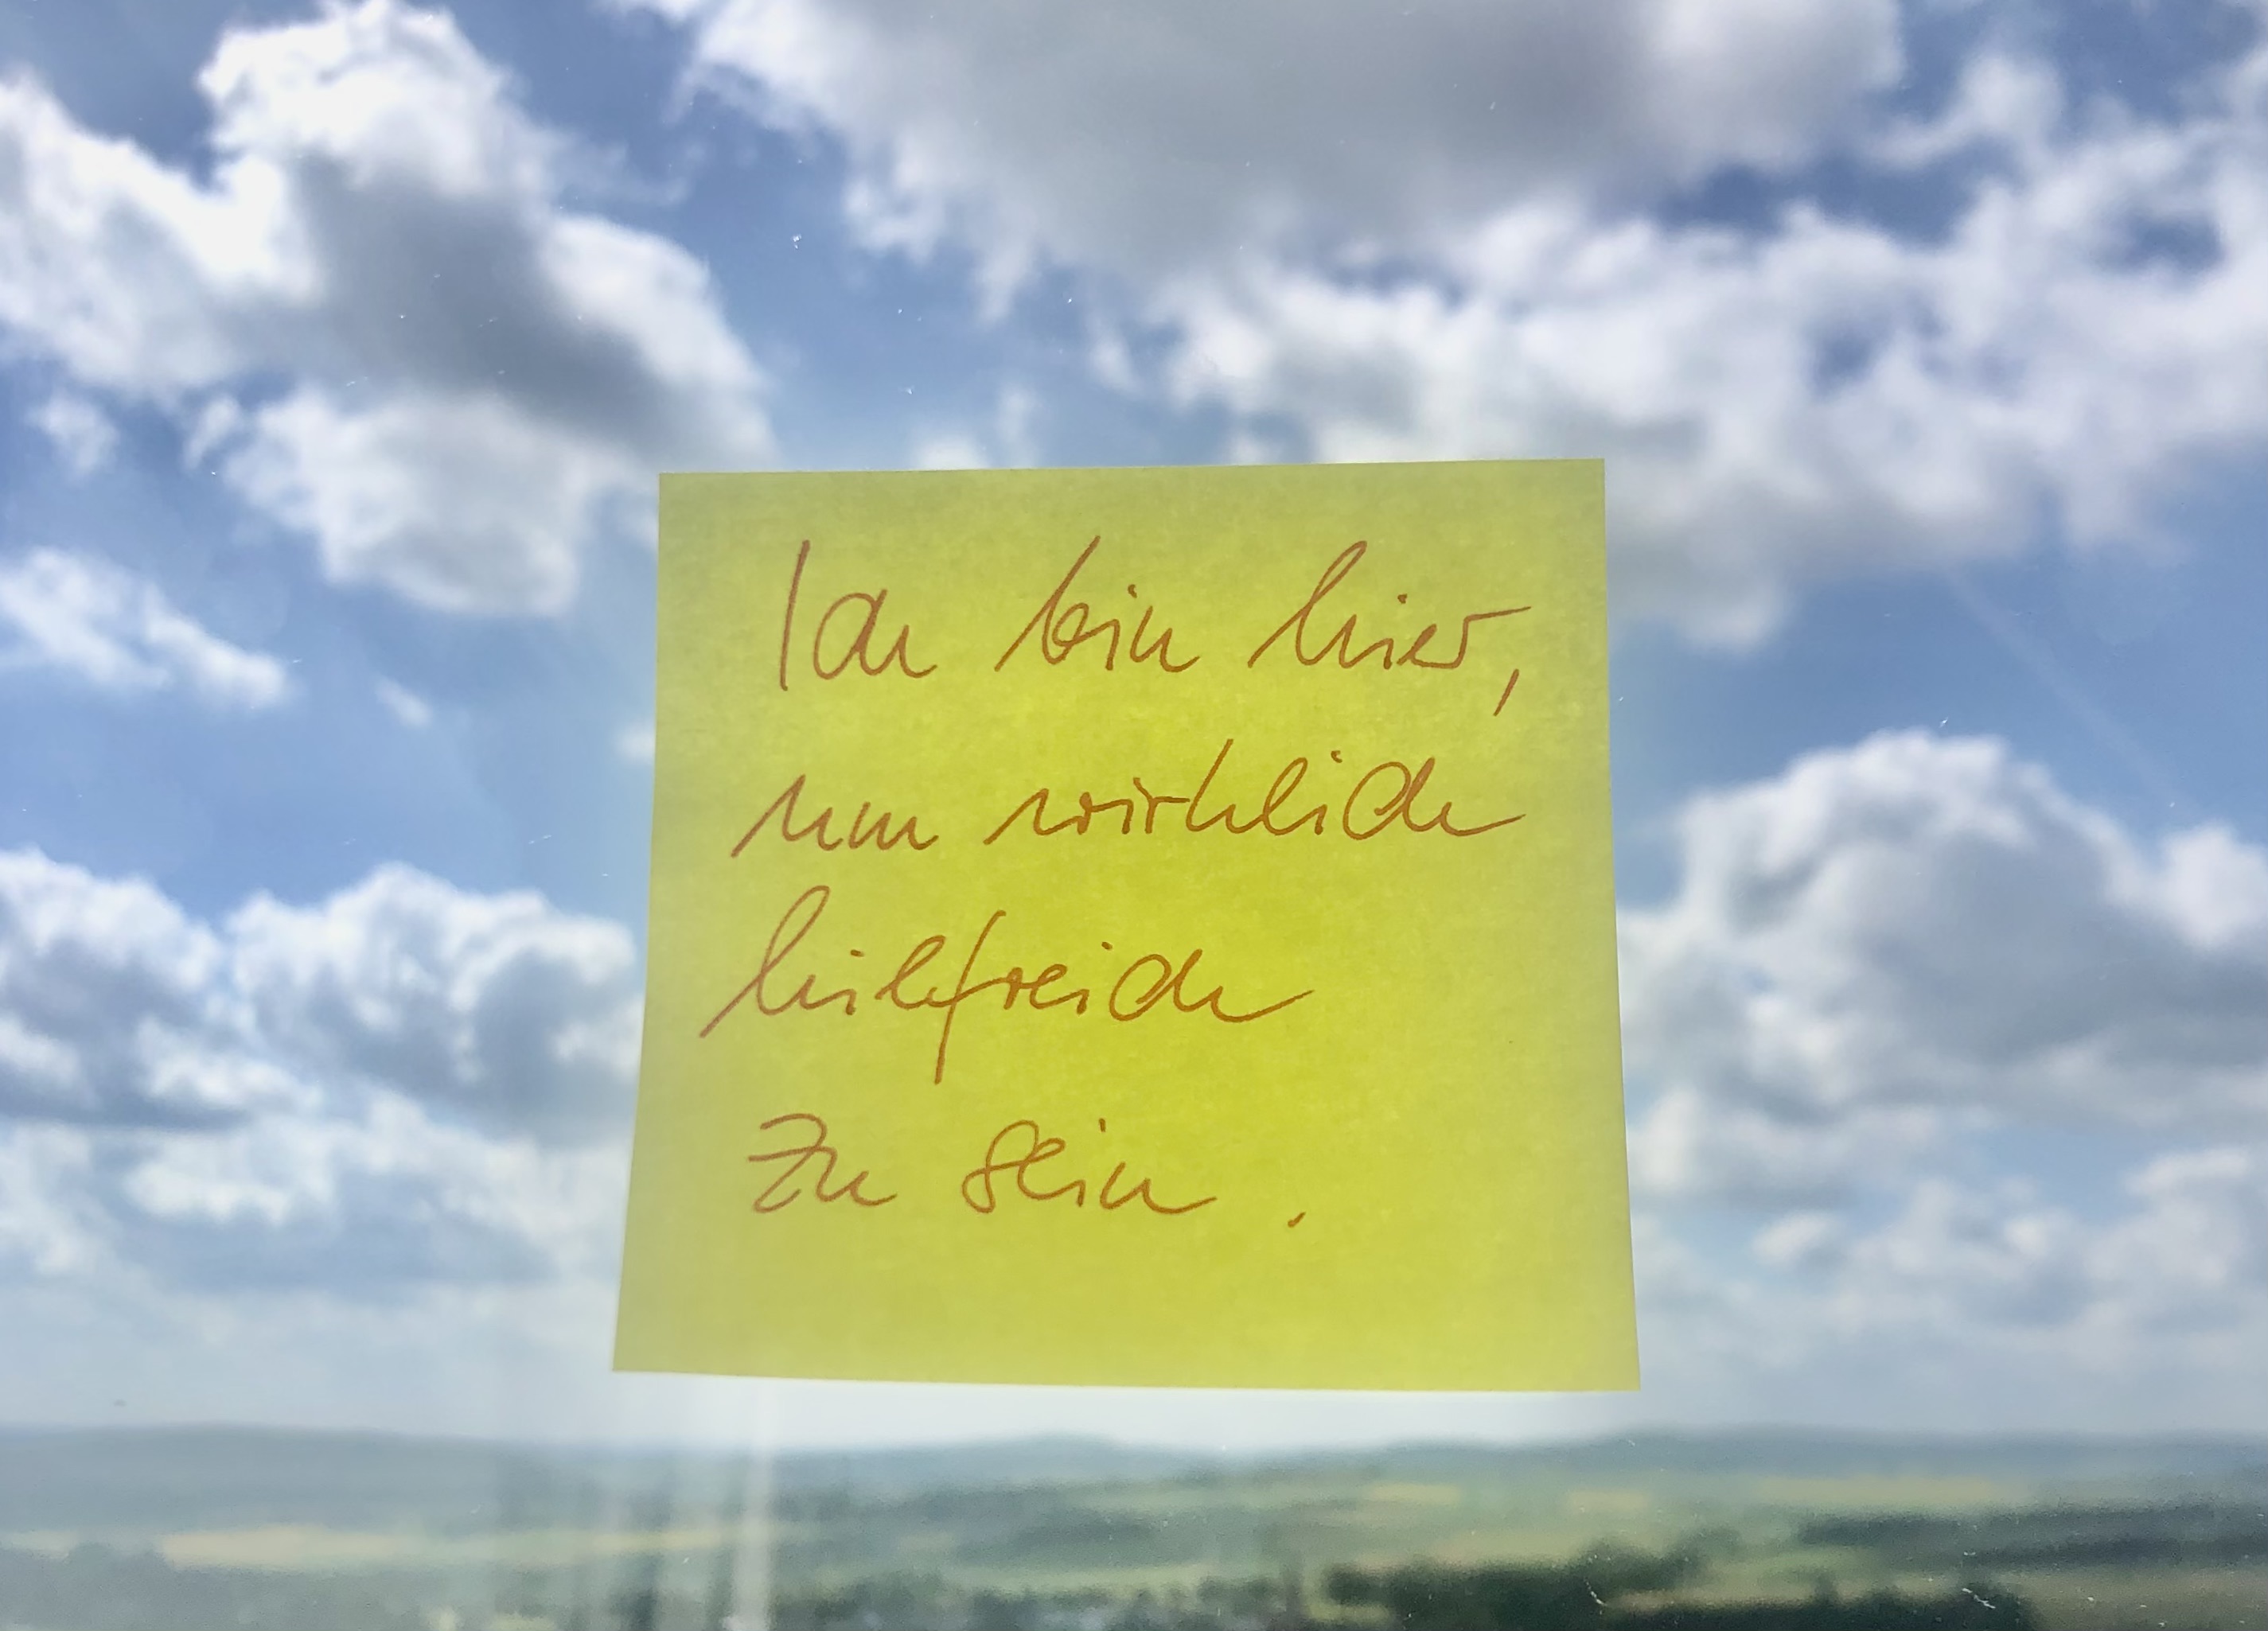 Ich bin hier,
um wirklich
hilfreich
zu sein.